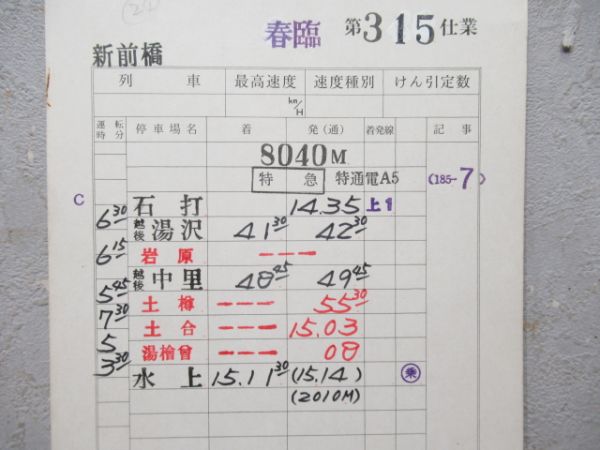 (24)
新前橋 春臨 第315仕業
列車 最高速度 速度種別 けん引定数
km/H
運転時分 停車場名 着 発(通) 着発線 記事
8040M
特急 特通電A5 (185-7)
C
石打 14.35 上1
6 30
越後湯沢 41 30 42 30
6 15
岩原 ---
越後中里 48 45 49 45
5 45
土樽 --- 55 30
7 30
土合 --- 15.03
5
湯檜曽 --- 08
3 30
水上 15.11 30 (15.14) 乗
(2010M)